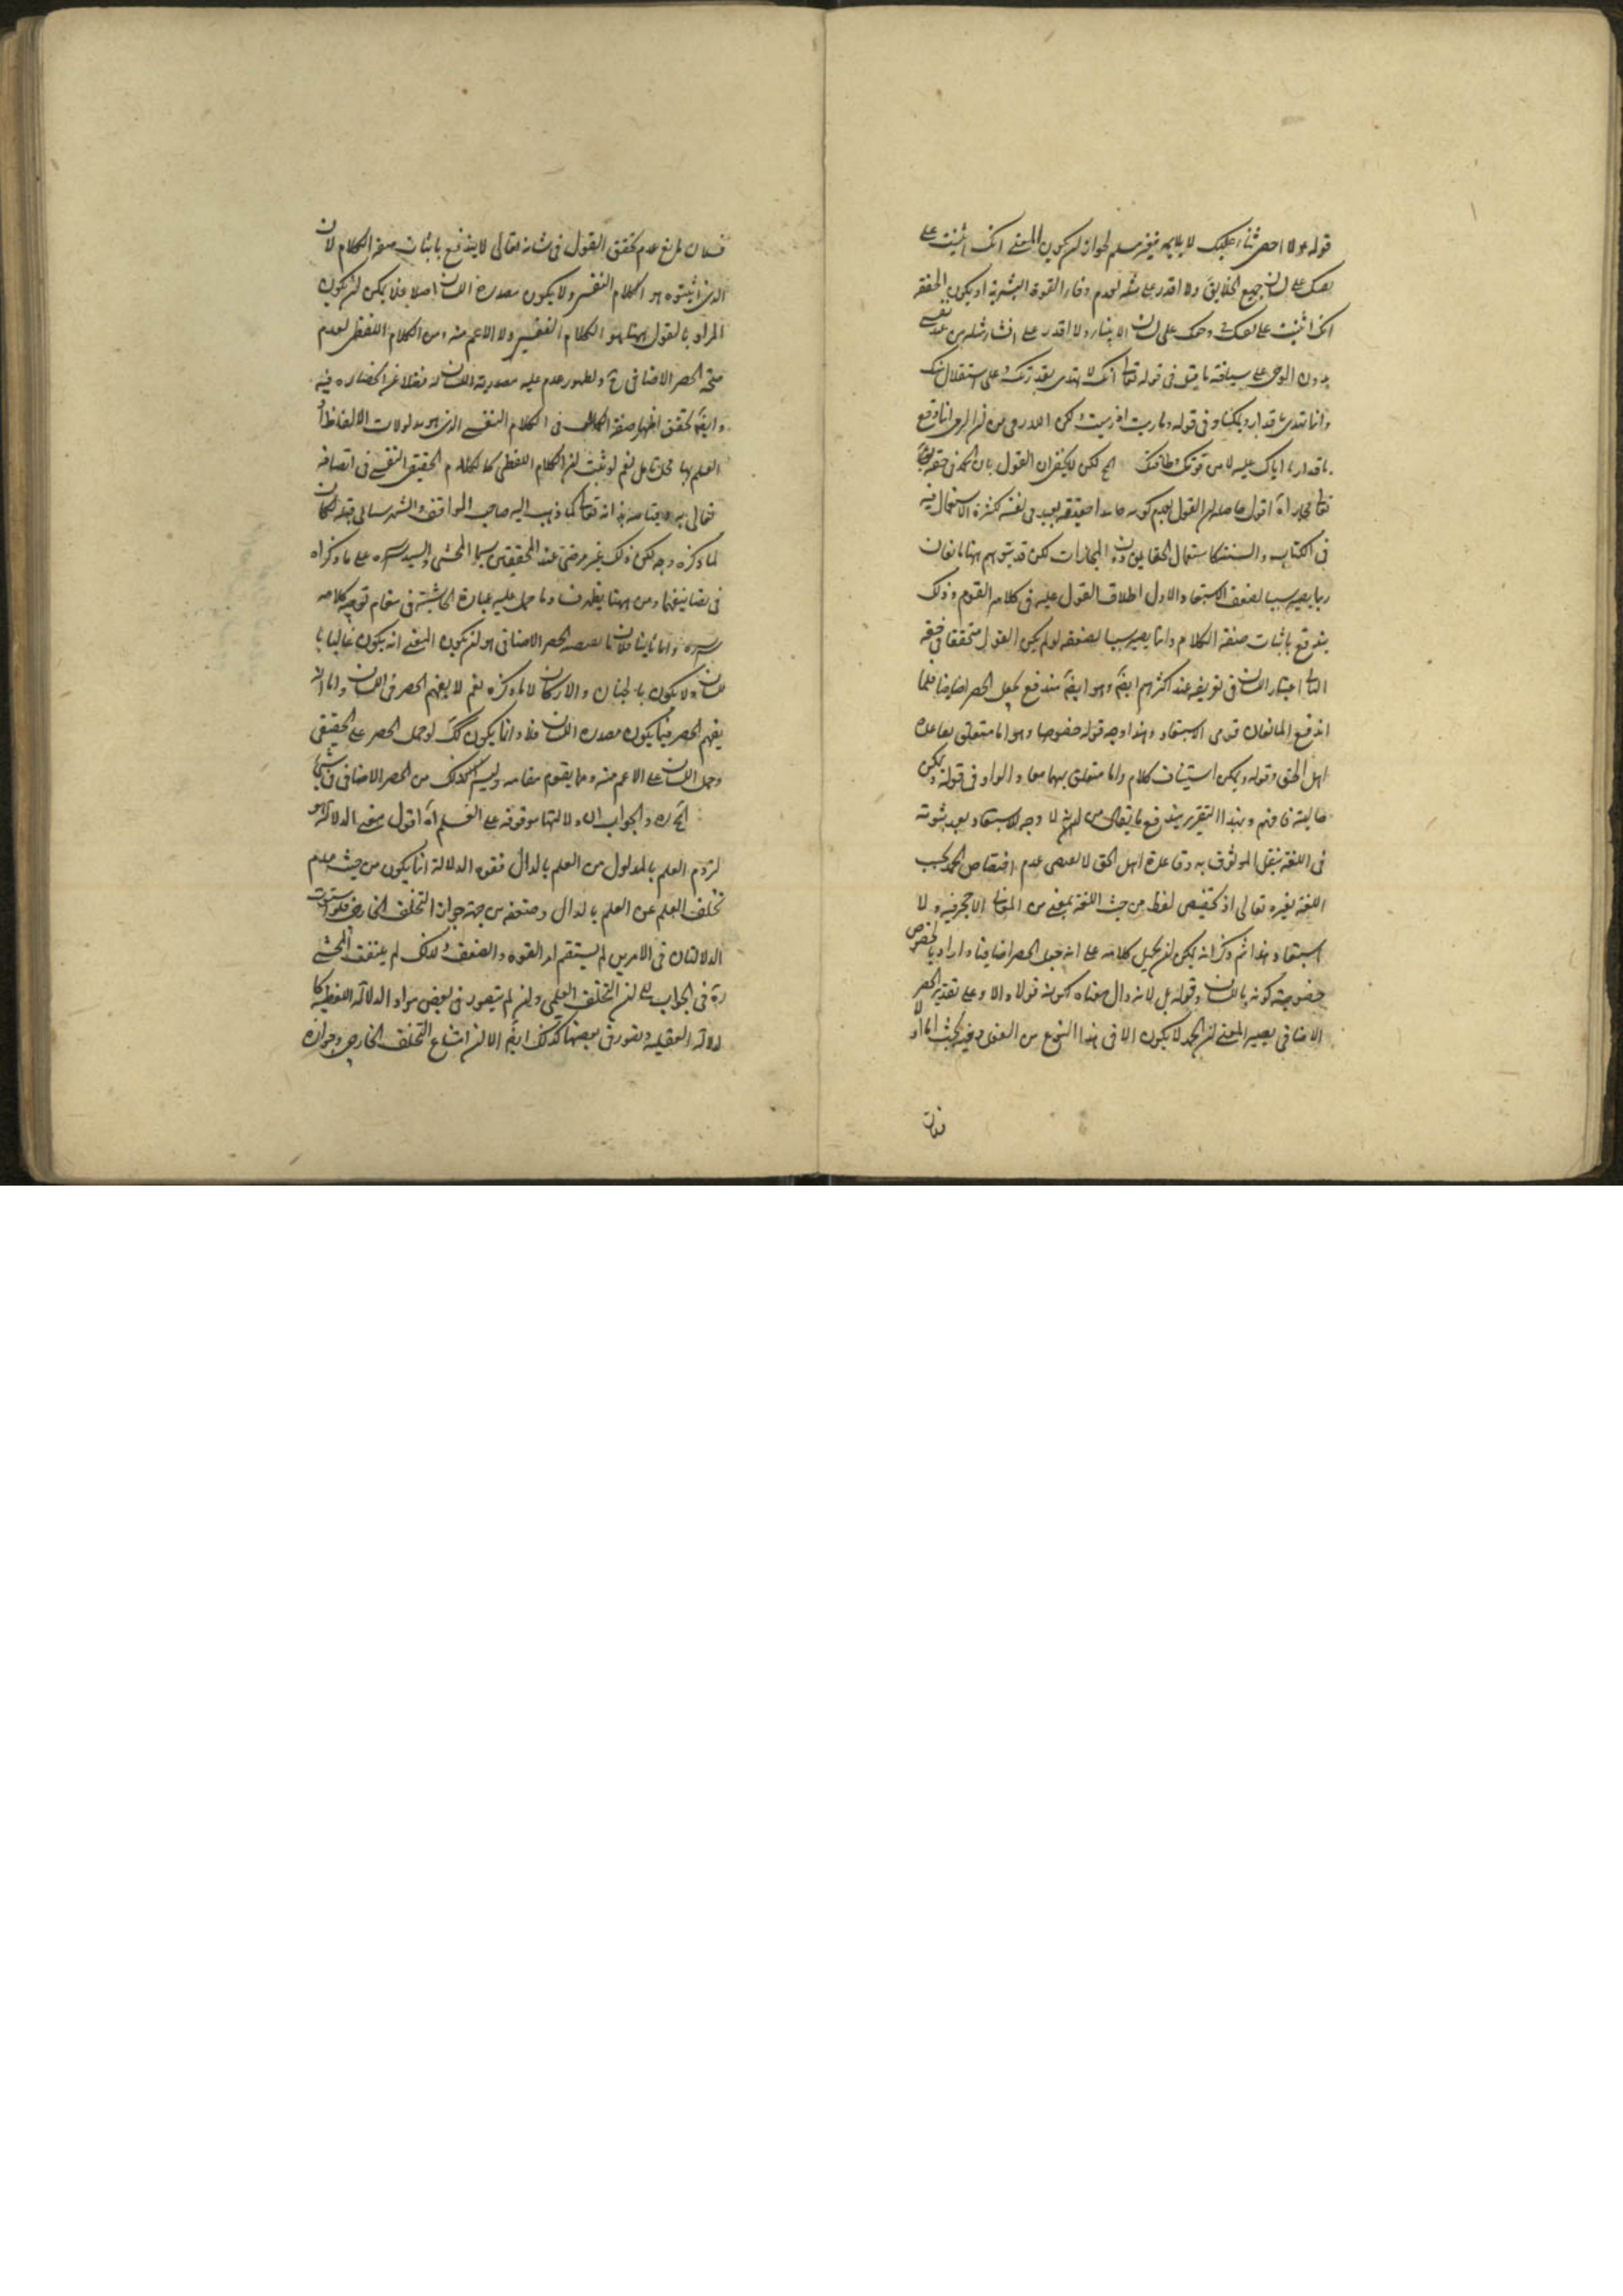 قوله ولا احصى ثناء عليك لا يلايمه غير مسلم لجواز ان يكون المعنى انك اثنيت على
نفسك على لسان جميع الخلايق ولا اقدر على مثله لعدم وفاء القوة البشرية او يكون المعنى
انك اثنيت على نفسك وحمدك على لسان الانبياء ولا اقدر على انشاء مثله من عند نفسى
بدون الوحى على سياقة ما قيل فى قوله تعالى انك لا تهدى بقدرتك وعلى استقلال منك
وانما تهدى باقدارنا وتمكيننا وفى قوله وما رميت اذ رميت ولكن الله رمى من ان الرمى انما وقع
باقدارنا اياك عليه لا من قوتك وطاقتك الخ لكن لا يخفى ان القول بان الحمد فى حقه
تعالى مجاز اه اقول حاصله ان القول بعدم كونه حامدا حقيقة بعيد فى نفسه لكثرة الاستعمال فيه
فى الكتاب والسنة كاستعمال الحقايق دون المجازات لكن قد يتوهم ههنا مانعان
ربما يصير سببا لضعف الاستبعاد الاول اطلاق القول عليه فى كلام القوم وذلك
يندفع باثبات صفة الكلام وانما يصير سببا لضعفه لو لم يكن القول متحققا فى حقه
الثانى اعتبار اللسان فى تعريفه عند اكثرهم ايضا وهو ايضا يندفع بجعل الحصر اضافيا فلما
اندفع المانعان قوى الاستبعاد وهذا وجه قوله خصوصا وهو اما متعلق بقاعدة
اهل الحق وقوله ويمكن استيناف كلام واما متعلق بهما معا والواو فى قوله ويمكن
حالية فافهم وبهذا التقرير يندفع ما يقال من انه لا وجه للاستبعاد بعد ثبوته
فى اللغة بنقل الموثوق به وقاعدة اهل الحق لا تقتضى عدم اختصاص الحمد بحسب
اللغة بغيره تعالى اذ تخصيص لفظ من حيث اللغة بمعنى من المعانى لا حجر فيه ولا
استبعاد هذا ثم ذكر انه يمكن ان يحمل كلامه على انه جعل الحصر اضافيا واراد بالخصوص
خصوصية كونه باللسان وقوله بل لانه دال معناه لكونه قولا دالا وعلى تقدير الحصر
الاضافى يصير المعنى ان الحمد لا يكون الا فى هذا النوع من القول وفيه بحث اما اولا
فلان
فلان مانع عدم تحقق القول فى شانه تعالى لا يندفع باثبات صفة الكلام لان
الذى اثبتوه هو الكلام النفسى ولا يكون مصدره اللسان اصلا فلا يمكن ان يكون
المراد بالقول ههنا هو الكلام النفسى ولا الاعم منه ومن الكلام اللفظى لعدم
صحة الحصر الاضافى ح ولظهور عدم عليه مصدرية اللسان له فضلا عن انحصاره فيه
وايضا تحقق اظهار صفة الكمال فى الكلام النفسى الذى هو مدلولات الالفاظ او
العلم بها محل تامل نعم لو ثبت ان الكلام اللفظى كالكلام الحقيقى النفسى فى اتصافه
تعالى به وقيامه بذاته تعالى كما ذهب اليه صاحب المواقف والشهرستانى قبله لكان
لما ذكره وجه لكن ذلك غير مرضى عند المحققين سيما المحشى والسيد سره على ما ذكراه
فى تصانيفهما ومن ههنا يظهر فساد ما حمل عليه عبارة الحاشية فى مقام توجيه كلامه
سره واما ثانيا فلان ما يقتضيه الحصر الاضافى هو ان يكون المعنى انه يكون غالبا با
للسان ولا يكون بالجنان والاركان لا ما ذكره نعم لا يفهم الحصر فى اللسان واما ان
يفهم الحصر فيما يكون مصدره اللسان فلا وانما يكون كك لو حمل الحصر على الحقيقى
وحمل اللسان على الاعم منه ومما يقوم مقامه وليس كذلك من الحصر الاضافى فى شئ
الخ ره والجواب ان دلالتها موقوفة على العلم اه اقول معنى الدلالة هو
لزوم العلم بالمدلول من العلم بالدال فقوة الدلالة انما يكون من حيث عدم
تخلف العلم عن العلم بالدال وضعفه من جهة جواز التخلف الخارجى فلو استوت
الدلالتان فى الامرين لم يستقم امر القوة والضعف ولذلك لم يلتفت المحشى
ره فى الجواب الى ان التخلف العلمى وان لم يتصور فى بعض مواد الدلالة اللفظية كا
لدلالة العقلية ويتصور فى بعضها كذلك ايضا الا ان امتناع التخلف الخارجى وجوازه